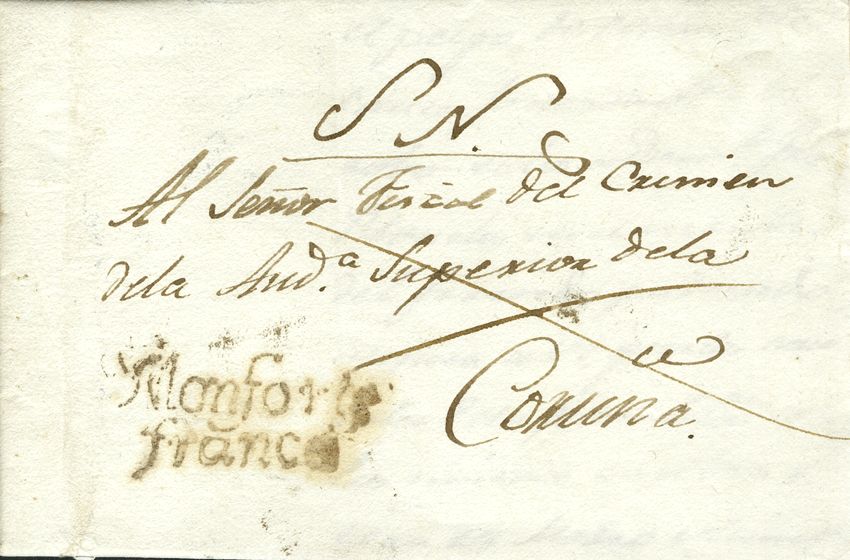 S. N.
Al Señor Fiscal del Crimen
dela Aud.ª Superior dela
Coruña.
Monforte
franco